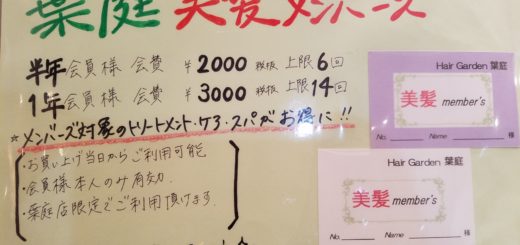 葉庭 美髪メンバーズ
半年会員様 会費 ¥2000 税抜 上限6回
1年会員様 会費 ¥3000 税抜 上限14回
☆メンバーズ対象のトリートメント・ケア・スパがお得に!!
・お買い上げ当日からご利用可能
・会員様本人のみ有効
・葉庭店限定でご利用頂けます
Hair Garden 葉庭
美髪 member's
No. Name 様
Hair Garden 葉庭
美髪 member's
No. Name 様